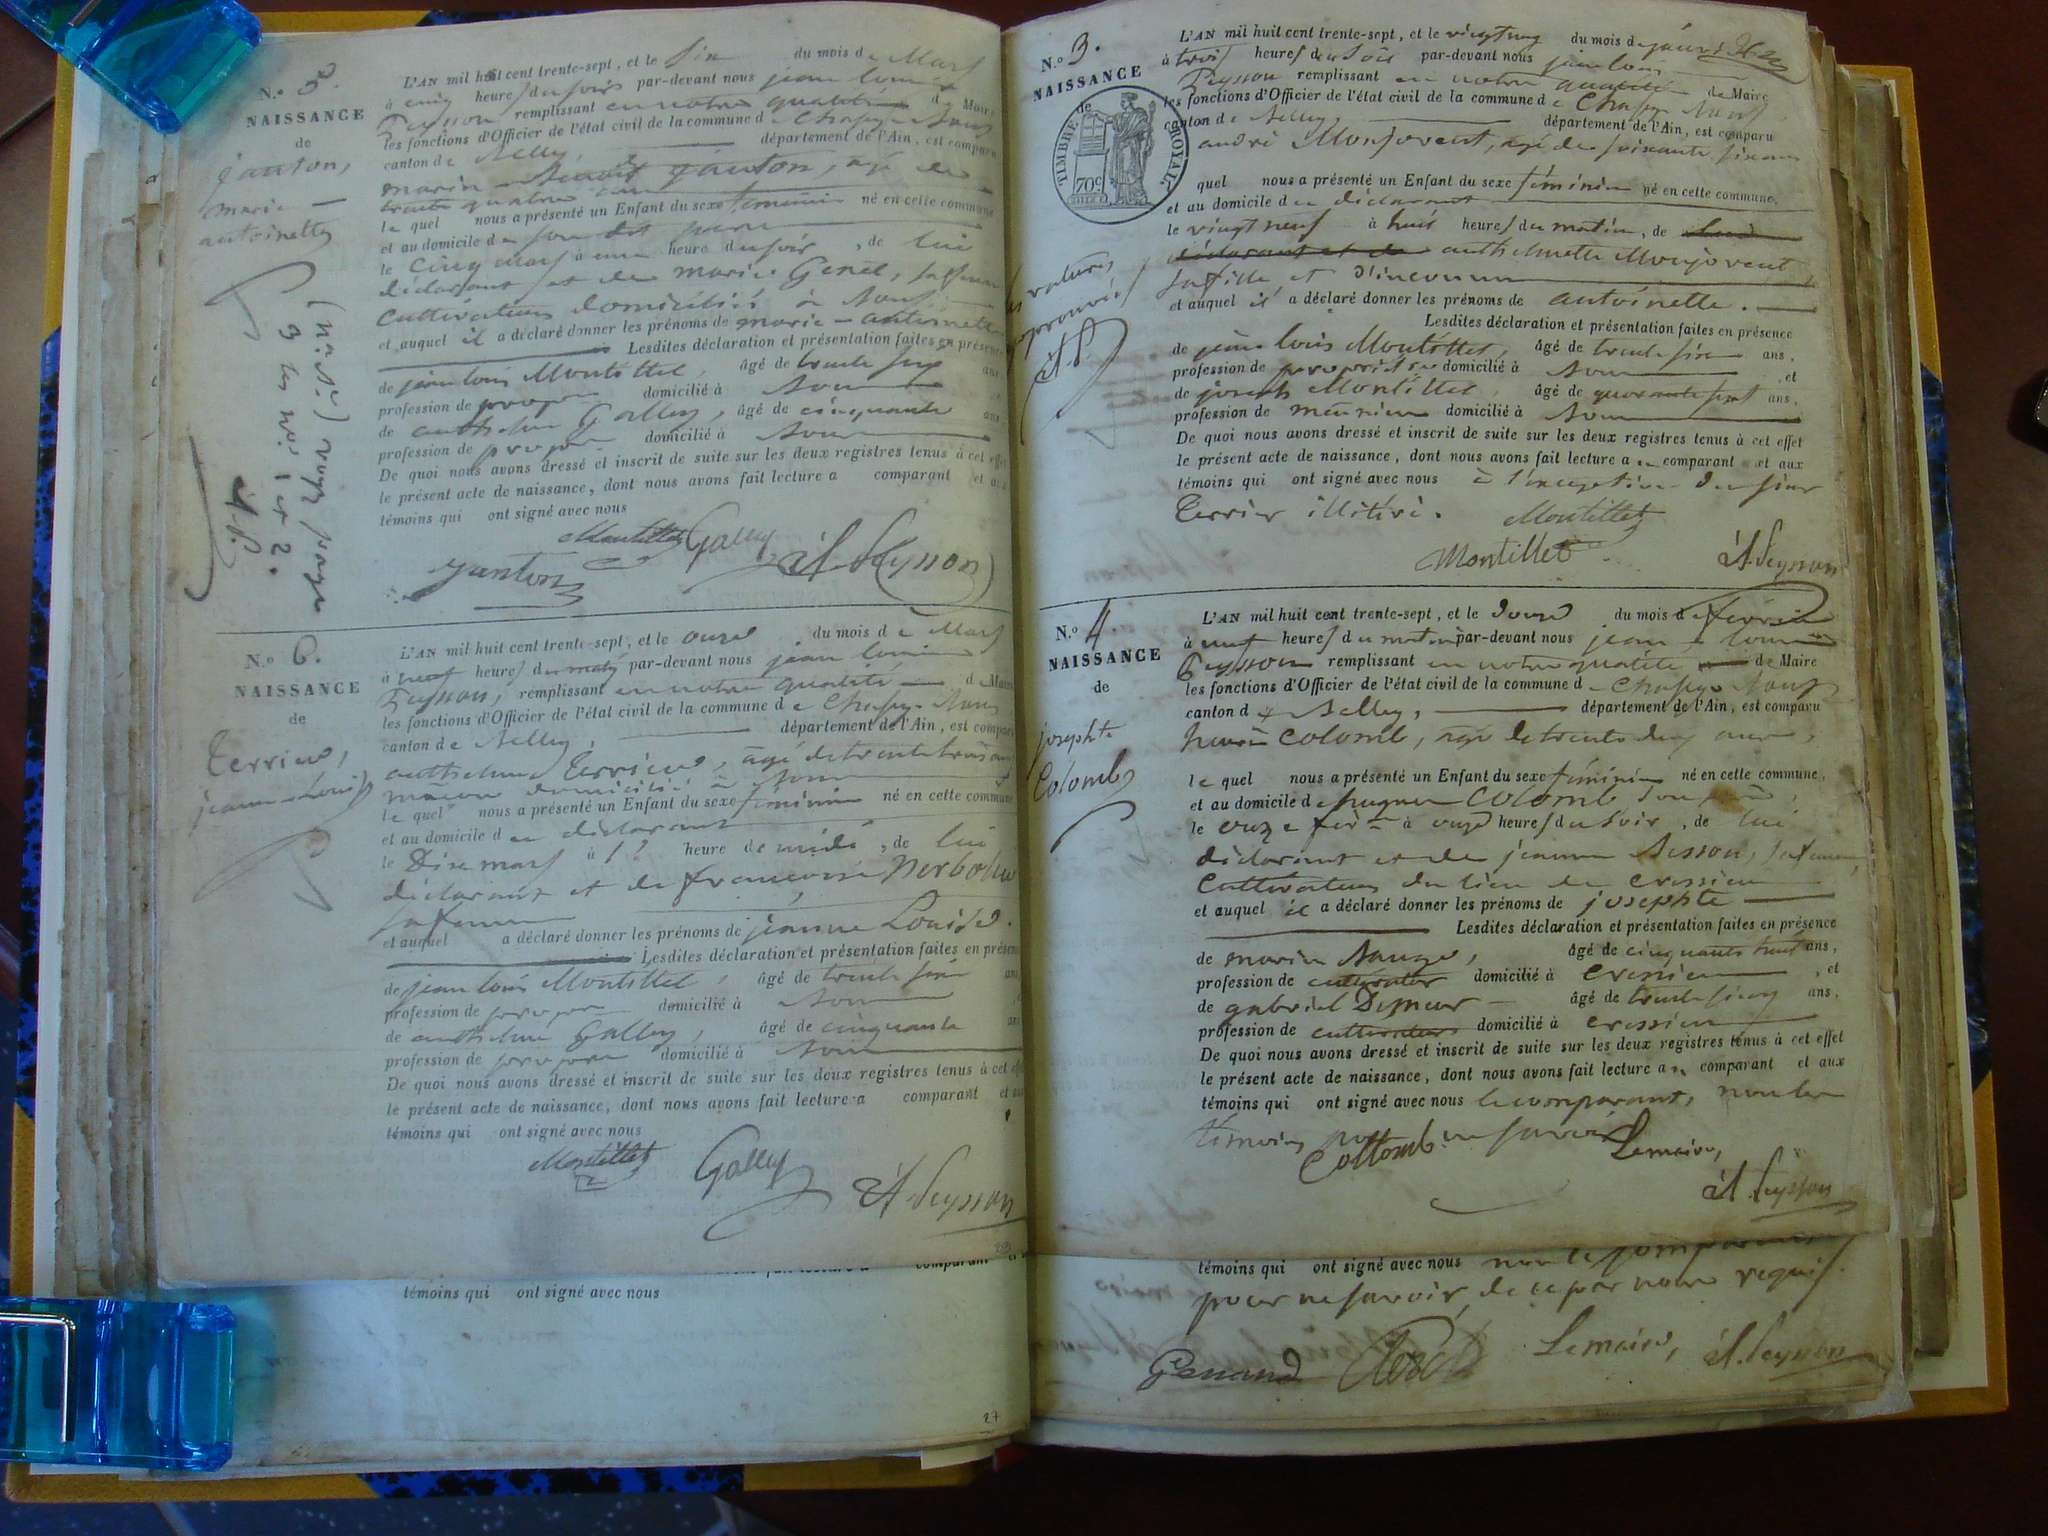 N.o 5.
NAISSANCE
de
ganton,
marie
antoinette
(na. Sa.) voyez page
3 les nos 1 et 2.
A.P.
L'AN mil huit cent trente-sept, et le Six du mois de Mars
à cinq heures du soir par-devant nous jean louis
Peysson remplissant en notre qualité de Maire
les fonctions d'Officier de l'état civil de la commune de
canton de Belley, département de l'Ain, est comparu
marin ganton, agé de
trente quatre ans
le quel nous a présenté un Enfant du sexe féminin né en cette commune
et au domicile de son dit père
le cinq mars à une heure du soir, de lui
déclarant et de marie Genet, sa femme
cultivateurs domiciliés à
et auquel il a déclaré donner les prénoms de marie-antoinette
Lesdites déclaration et présentation faites en présence
de jean louis Montillet, âgé de trente six ans
profession de propre domicilié à
de anthelme Galley, âgé de cinquante ans
profession de propre domicilié à
De quoi nous avons dressé et inscrit de suite sur les deux registres tenus à cet effet
le présent acte de naissance, dont nous avons fait lecture a comparant et aux
témoins qui ont signé avec nous
Montillet Galley A. Peysson
ganton
N.o 6.
NAISSANCE
de
Terrier,
jeanne-Louise
L'AN mil huit cent trente-sept, et le onze du mois de Mars
à neuf heures du matin par-devant nous jean louis
Peysson, remplissant en notre qualité de Maire
les fonctions d'Officier de l'état civil de la commune de
canton de Belley, département de l'Ain, est comparu
anthelme Terrier, âgé de trente trois ans
maçon domicilié à
le quel nous a présenté un Enfant du sexe féminin né en cette commune
et au domicile du déclarant
le Dix mars à 12 heure de midi, de lui
déclarant et de françoise
sa femme
et auquel a déclaré donner les prénoms de jeanne Louise.
Lesdites déclaration et présentation faites en présence
de jean louis Montillet, âgé de trente six ans
profession de propre domicilié à
de anthelme Galley, âgé de cinquante ans
profession de propre domicilié à
De quoi nous avons dressé et inscrit de suite sur les deux registres tenus à cet effet
le présent acte de naissance, dont nous avons fait lecture a comparant et aux
témoins qui ont signé avec nous
Montillet Galley A. Peysson
comparant
témoins qui ont signé avec nous
27
N.o 3.
NAISSANCE
de
TIMBRE ROYAL
70c
ratures
approuvées
A.P.
L'AN mil huit cent trente-sept, et le vingtneuf du mois de janvier
à trois heures du Soir par-devant nous jean louis
Peysson remplissant en notre qualité de Maire
les fonctions d'Officier de l'état civil de la commune de
canton de Belley, département de l'Ain, est comparu
andré Monjovent, agé de soixante six ans
quel nous a présenté un Enfant du sexe féminin né en cette commune,
et au domicile du déclarant
le vingt neuf à huit heures du matin, de
déclarant et de anthelmette Monjovent
sa fille et d'inconnu
et auquel il a déclaré donner les prénoms de antoinette.
Lesdites déclaration et présentation faites en présence
de jean louis Montillet, âgé de trente six ans,
profession de propriétre domicilié à , et
de joseph Montillet, âgé de quarante sept ans,
profession de meunier domicilié à
De quoi nous avons dressé et inscrit de suite sur les deux registres tenus à cet effet
le présent acte de naissance, dont nous avons fait lecture au comparant et aux
témoins qui ont signé avec nous à l'exception du sieur
Terrier illitéré. Montillet
Montillet A. Peysson
N.o 4
NAISSANCE
de
josephte
Colomb
L'AN mil huit cent trente-sept, et le douze du mois de février
à neuf heures du matin par-devant nous jean louis
Peysson remplissant en notre qualité de Maire
les fonctions d'Officier de l'état civil de la commune de
canton de Belley, département de l'Ain, est comparu
Colomb, agé de trente deux ans,
le quel nous a présenté un Enfant du sexe féminin né en cette commune,
et au domicile de hugues Colomb son père,
le onze fév. à onze heures du soir, de lui
déclarant et de jeanne Sisson, sa femme,
Cultivateurs du lieu de cressieu
et auquel il a déclaré donner les prénoms de josephte
Lesdites déclaration et présentation faites en présence
de marin , âgé de cinquante huit ans,
profession de cultivateur domicilié à cressieu, et
de gabriel âgé de trente cinq ans,
profession de cultivateur domicilié à cressieu
De quoi nous avons dressé et inscrit de suite sur les deux registres tenus à cet effet
le présent acte de naissance, dont nous avons fait lecture au comparant et aux
témoins qui ont signé avec nous le comparant, non les
témoins pour ne savoir
Collomb Le maire,
A. Peysson
témoins qui ont signé avec nous non le comparant
pour ne savoir, de ce par nous requis.
Genand Le maire, A. Peysson